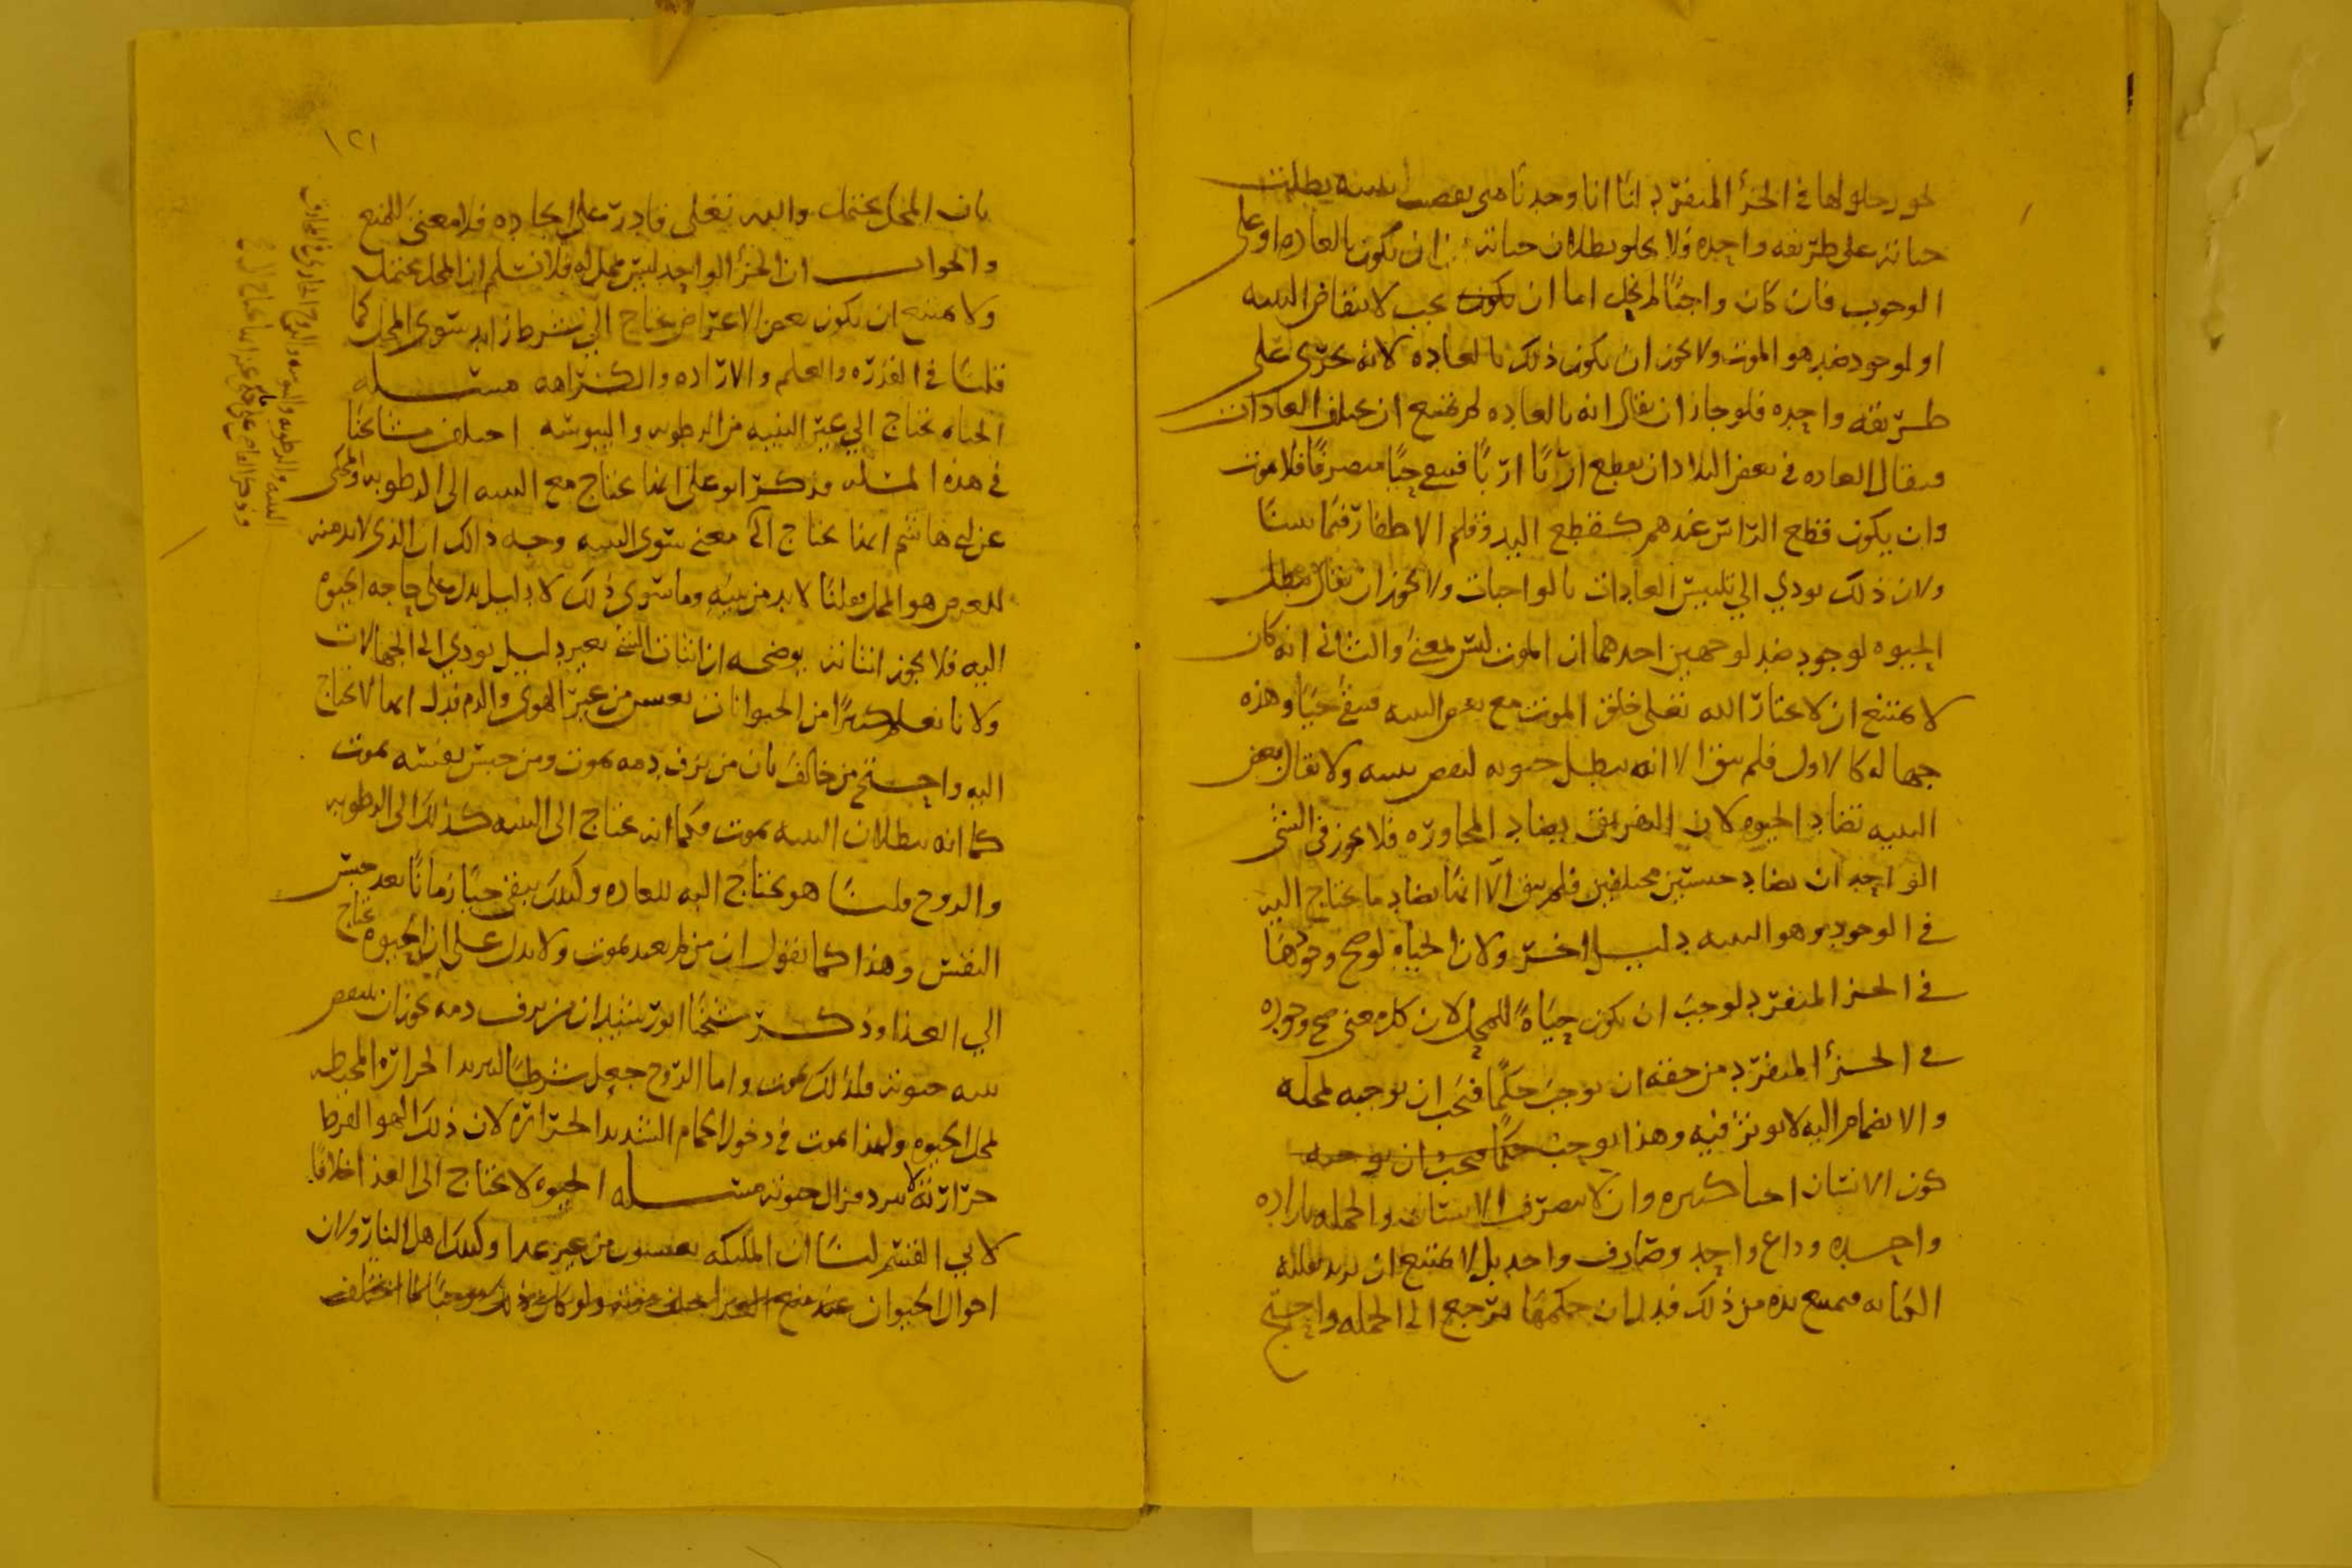 حلولها في الجزء المنفرد لنا انا وجدنا متى بنيته بطلت
حياته على طريقه واحده فلا يخلو بطلان حياته ان تكون بالعاده او على
الوجوب فان كان واجبًا لم يخل اما ان يكون يجب لانتقاض البنيه
او لوجود ضد هو الموت ولا يجوز ان يكون ذلك بالعاده لانه يجرى على
طريقه واحده فلو جاز ان يقال انه بالعاده لم يمتنع ان تختلف العادات
فيقال العاده في بعض البلاد ان يقطع اربًا اربًا فيبقى حيًا متصرفًا فلا يموت
وان يكون قطع الراس عندهم كقطع اليد وقلم الاظفار فيما بيننا
ولان ذلك يودي الى تلبيس العادات بالواجبات ولا يجوز ان يقال تبطل
الحيوه لوجود ضد لوجهين احدهما ان الموت ليس بمعنىً والثاني انه كان
لا يمتنع ان لا يختار الله تعلى خلق الموت مع نقض البنيه فيبقى حيًا وهذه
جهاله كالاول فلم يبق الا انه يبطل حيوته لنقص بنيته ولا يقال نقض
البنيه تضاد الحيوه لان التفريق يضاد المجاوره فلا يجوز في الشي
الواحد ان يضاد جنسين مختلفين فلم يبق الا انما يضاد ما يحتاج اليه
في الوجود وهو البنيه دليل اخر ولان الحياه لو صح وجودها
في الجزء المنفرد لوجب ان يكون حياةً للمحل لان كل معنى صح وجوده
في الجزء المنفرد من حقه ان يوجب حكمًا فيجب ان يوجبه لمحله
والانضمام اليه لا يوثر فيه وهذا يوجب حكمًا فيجب ان يوجبه
كون الانسان احيا كثيره وان لا يتصرف الانسان والجمله باراده
واحده وداع واحد وصارف واحد بل لا يمتنع ان يريد بقلبه
الكتابه فيمتنع يده من ذلك فدل ان حكمها يرجع الى الجمله واحتج
١٢١
بان المحل يحتمل والله تعلى قادر على ايجاده فلا معنى للمنع
والجواب ان الجزء الواحد ليس بمحل له فلا نسلم ان المحل يحتمل
ولا يمتنع ان يكون بعض الاعراض يحتاج الى شرط زايد سوى المحل كما
قلنا في القدره والعلم والاراده والكراهه مسله
الحياه تحتاج الى غير البنيه من الرطوبه واليبوسه اختلف مشايخنا
في هذه المسله فذكر ابو على انها تحتاج مع البنيه الى الرطوبه والمحكى
عن ابي هاشم انها تحتاج الى معنى سوى البنيه وجه ذلك ان الذي لا بد منه
للعرض هو المحل وقلنا لا بد من بنيه وما سوى ذلك لا دليل يدل على حاجه الحيوه
اليه فلا يجوز اثباته يوضحه ان اثبات الشي بغير دليل يودي الى الجهالات
ولانا نعلم كثيرًا من الحيوانات يعيش من غير الهوى والدم فدل انها لا تحتاج
اليه واحتج من خالف بان من نزف دمه يموت ومن حبس نفسه يموت
كما انه ببطلان البنيه يموت فكما انه يحتاج الى البنيه كذلك الى الرطوبه
والروح قلنا هو يحتاج اليه للعاده ولذلك يبقى حيًا زمانًا بعد حبس
النفس وهذا كما نقول ان من لم يغد يموت ولا يدل على ان الحيوه تحتاج
الى الغذا وذكر شيخنا ابو رشيد ان من نزف دمه يجوز ان تنتقض
بنيه حيوته فلذلك يموت واما الروح جعل شرطًا لتبريد الحراره المحيطه
بمحل الحيوه ولهذا يموت في دخول الحمام الشديد الحراره لان ذلك الهوا لفرط
حرارته لا يبرد فتزال حيوته مسله الحيوه لا تحتاج الى الغذا خلافًا
لابي القسم لنا ان الملئكه يعيشون من غير غذا وكذلك اهل النار ولان
احوال الحيوان عند منع الغذا تختلف موته ولو كان ذلك موجبًا لما اختلف